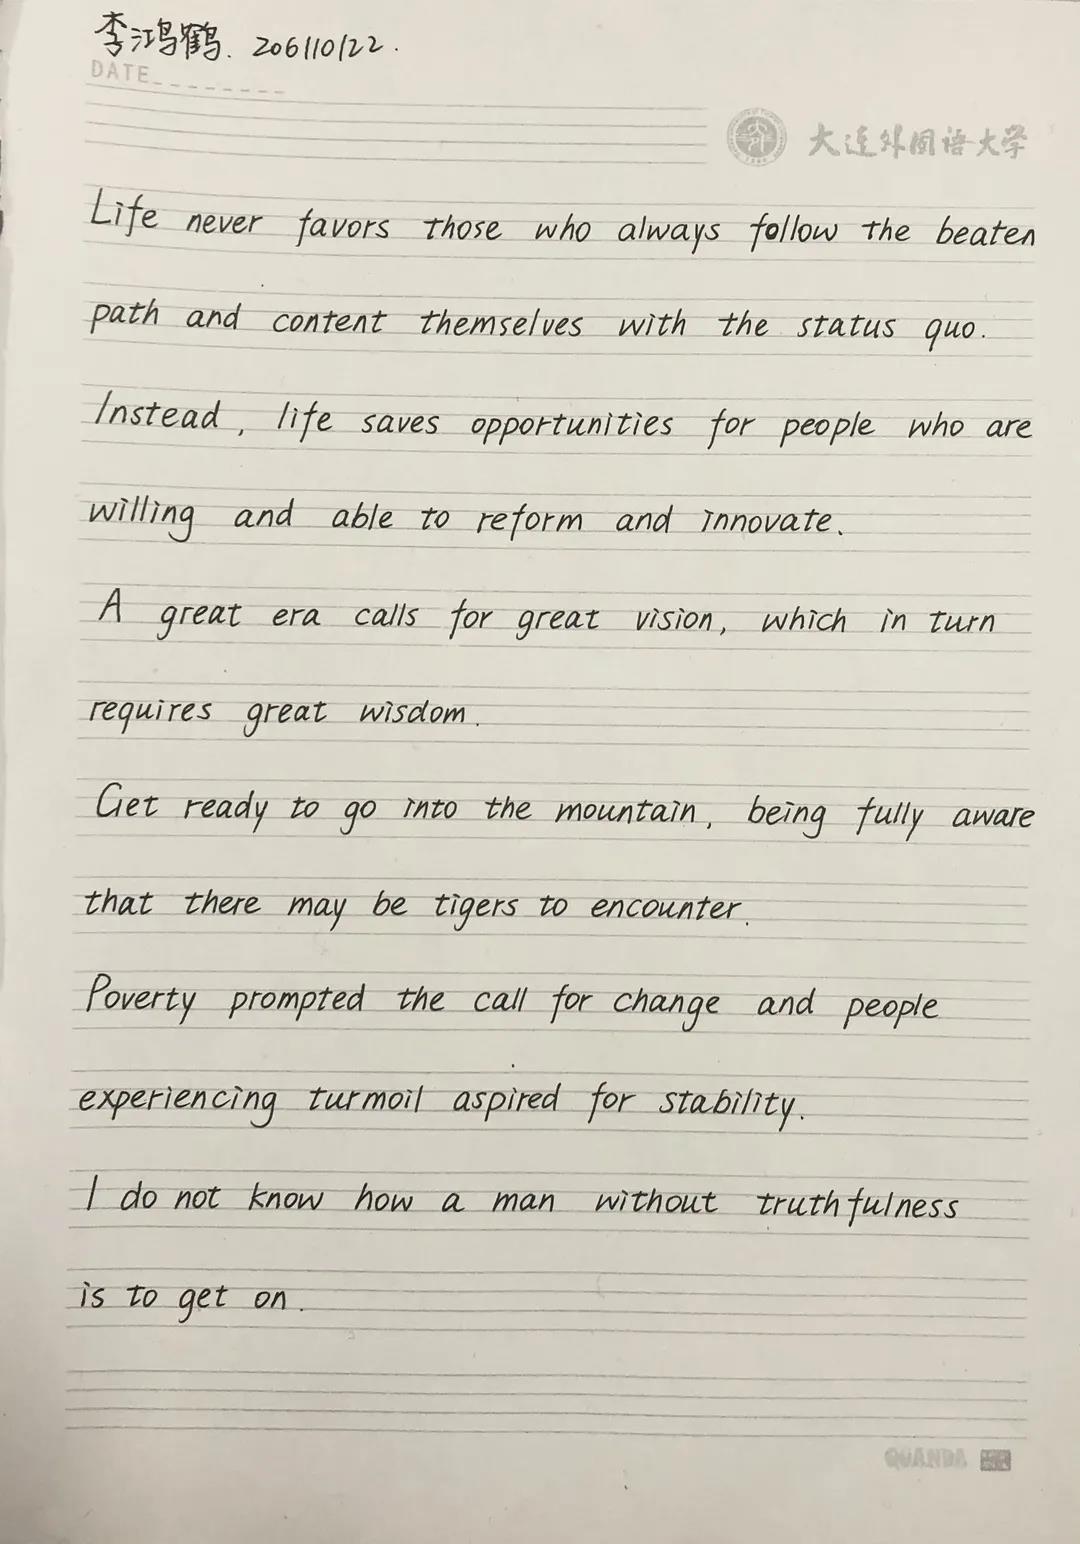 李鸿鹤. 206110122.
DATE
大连外国语大学
Life never favors those who always follow the beaten
path and content themselves with the status quo.
Instead, life saves opportunities for people who are
willing and able to reform and innovate.
A great era calls for great vision, which in turn
requires great wisdom.
Get ready to go into the mountain, being fully aware
that there may be tigers to encounter.
Poverty prompted the call for change and people
experiencing turmoil aspired for stability.
I do not know how a man without truthfulness
is to get on.
QUANDA